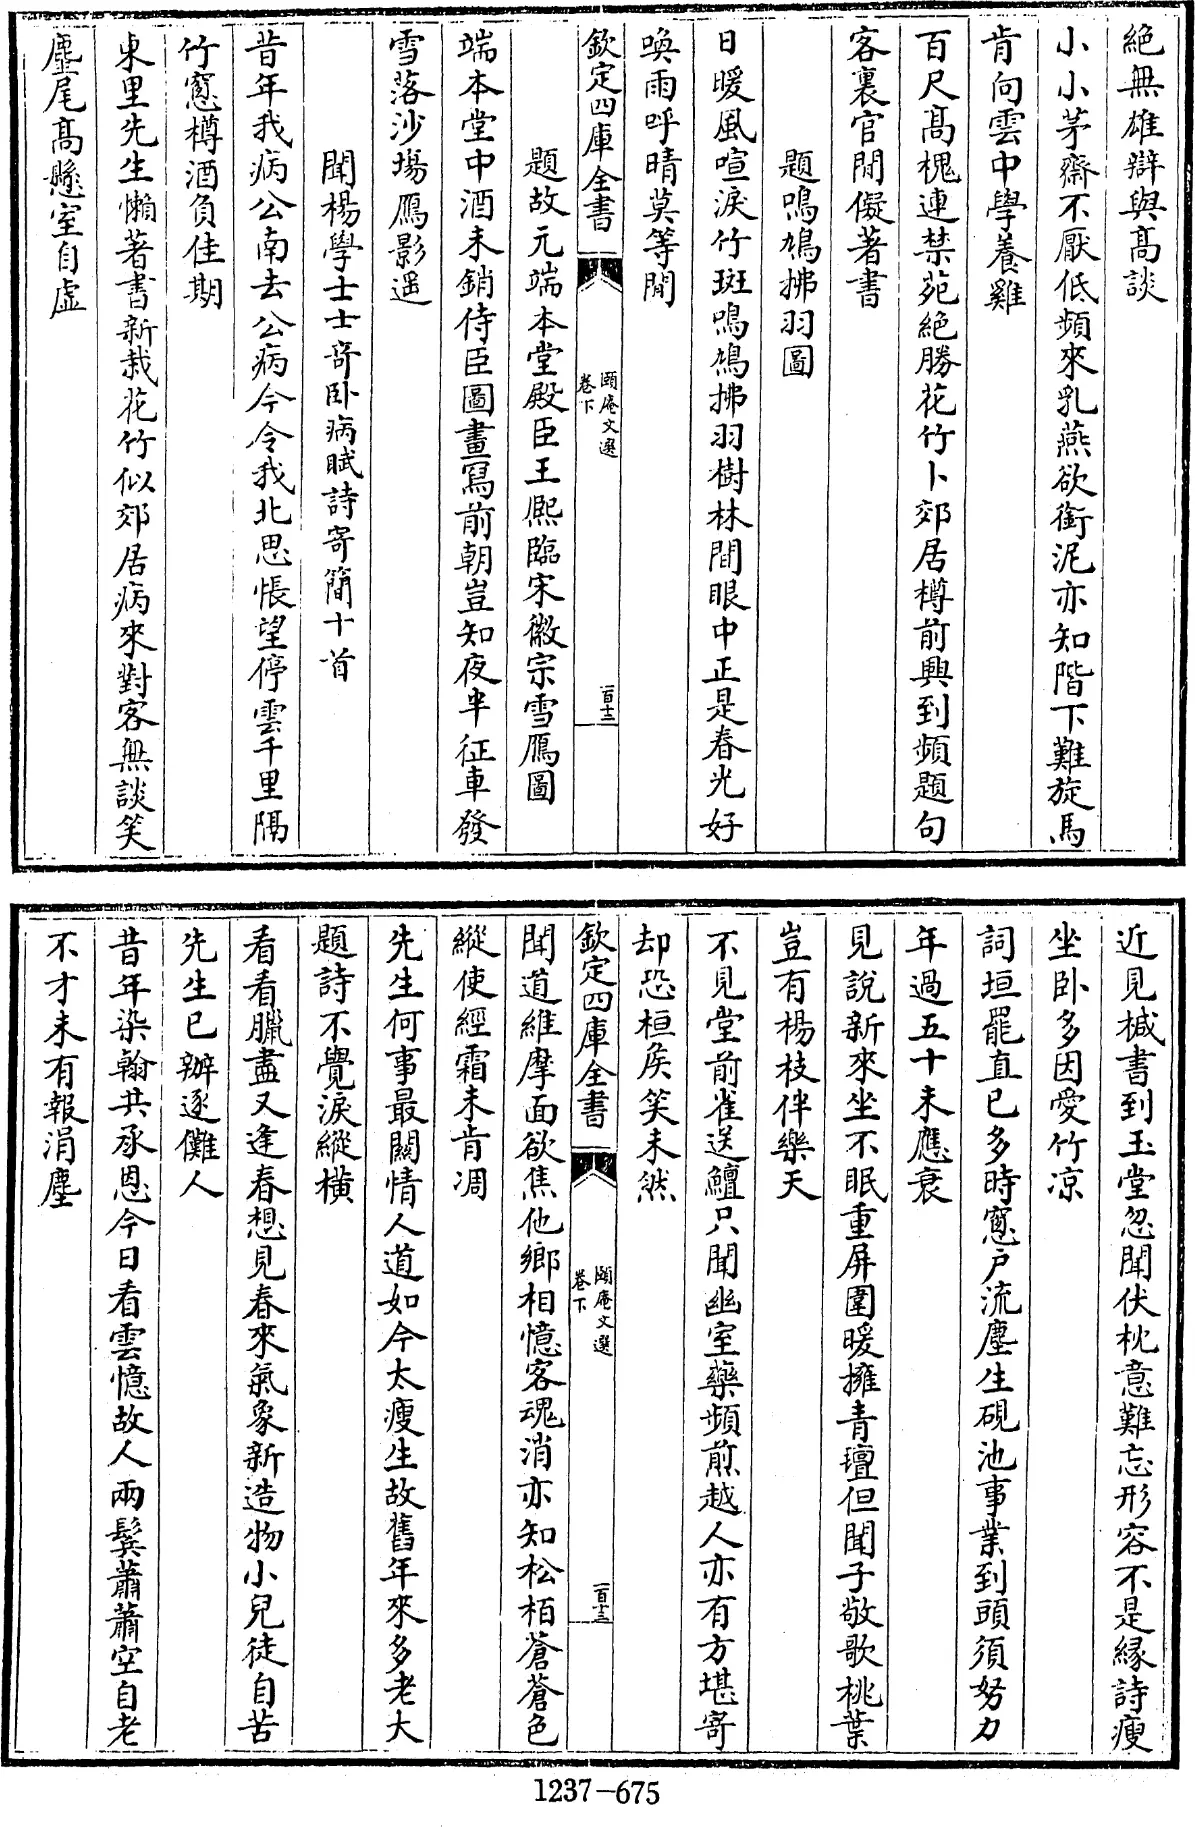 絶無雄辯與髙談
小小茅齋不厭低頻來乳燕欲銜泥亦知階下難旋馬
肯向雲中學養雞
百尺髙槐連禁苑絶勝花竹卜郊居樽前興到頻題句
客裏官閒儗著書
題鳴鳩拂羽圖
日暖風喧淚竹斑鳴鳩拂羽樹林間眼中正是春光好
喚雨呼晴莫等閒
欽定四庫全書
頤庵文選
卷下
一百十二
題故元端本堂殿臣王熈臨宋徽宗雪鴈圖
端本堂中酒未銷侍臣圖畫寫前朝豈知夜半征車發
雪落沙塲鴈影遥
聞楊學士士奇卧病賦詩寄簡十首
昔年我病公南去公病今令我北思悵望停雲千里隔
竹窻樽酒負佳期
東里先生懶著書新栽花竹似郊居病來對客無談笑
麈尾髙懸室自虚
近見椷書到玉堂忽聞伏枕意難忘形容不是縁詩瘦
坐卧多因愛竹凉
詞垣罷直已多時窻户流塵生硯池事業到頭須努力
年過五十未應衰
見說新來坐不眠重屏圍暖擁青氊但聞子敬歌桃葉
豈有楊枝伴樂天
不見堂前雀送鱣只聞幽室藥頻煎越人亦有方堪寄
却恐桓侯笑未然
欽定四庫全書
頤庵文選
卷下
一百十三
聞道維摩面欲焦他鄉相憶客魂消亦知松栢蒼蒼色
縱使經霜未肯凋
先生何事最關情人道如今太瘦生故舊年來多老大
題詩不覺淚縱横
看看臘盡又逢春想見春來氣象新造物小兒徒自苦
先生已辦逐儺人
昔年染翰共承恩今日看雲憶故人兩鬂蕭蕭空自老
不才未有報涓塵
1237-675